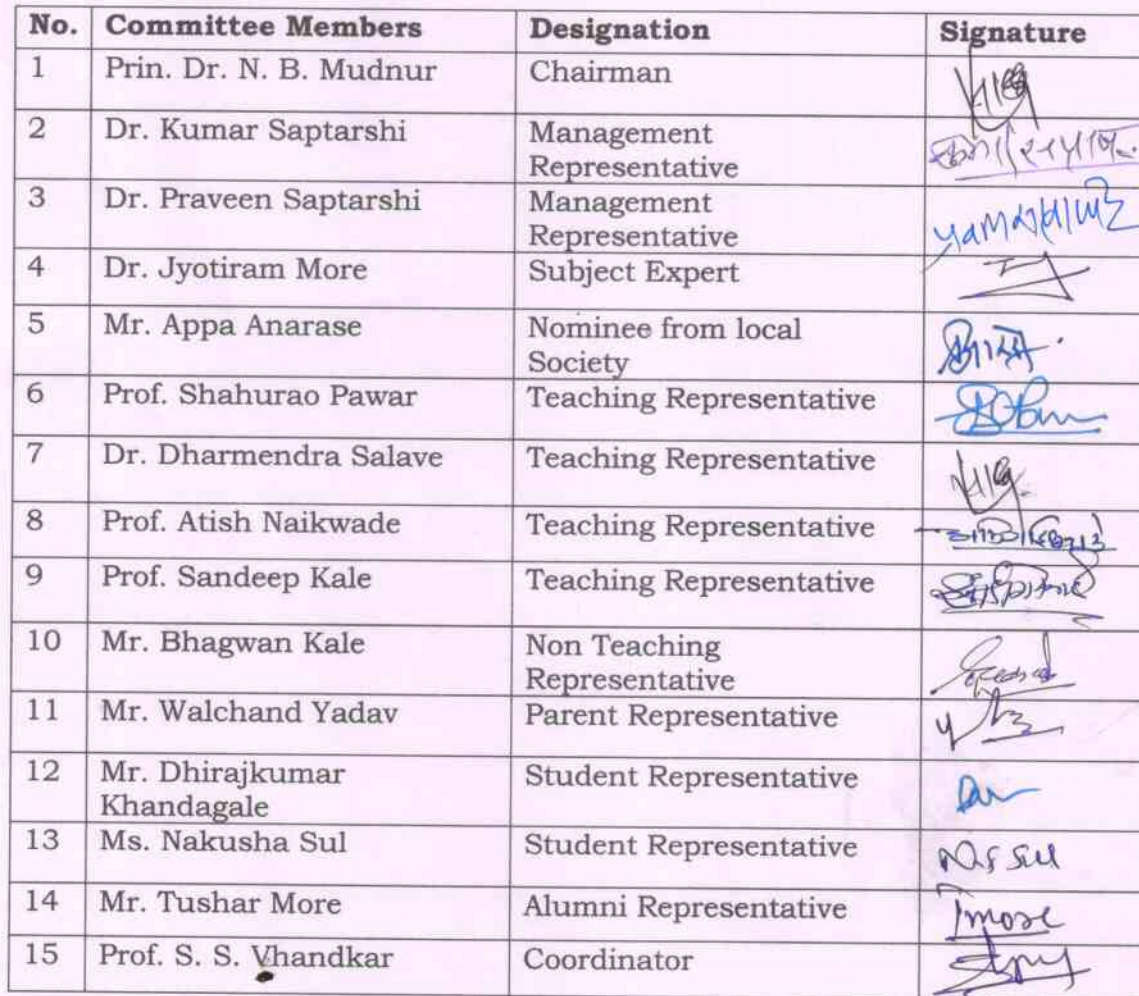 No. Committee Members Designation Signature
1 Prin. Dr. N. B. Mudnur Chairman
2 Dr. Kumar Saptarshi Management
Representative
3 Dr. Praveen Saptarshi Management
Representative
4 Dr. Jyotiram More Subject Expert
5 Mr. Appa Anarase Nominee from local
Society
6 Prof. Shahurao Pawar Teaching Representative
7 Dr. Dharmendra Salave Teaching Representative
8 Prof. Atish Naikwade Teaching Representative
9 Prof. Sandeep Kale Teaching Representative
10 Mr. Bhagwan Kale Non Teaching
Representative
11 Mr. Walchand Yadav Parent Representative
12 Mr. Dhirajkumar Student Representative
Khandagale
13 Ms. Nakusha Sul Student Representative
14 Mr. Tushar More Alumni Representative Tmore
15 Prof. S. S. Vhandkar Coordinator